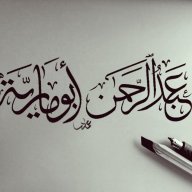 عبدالرحمن أبو مارية